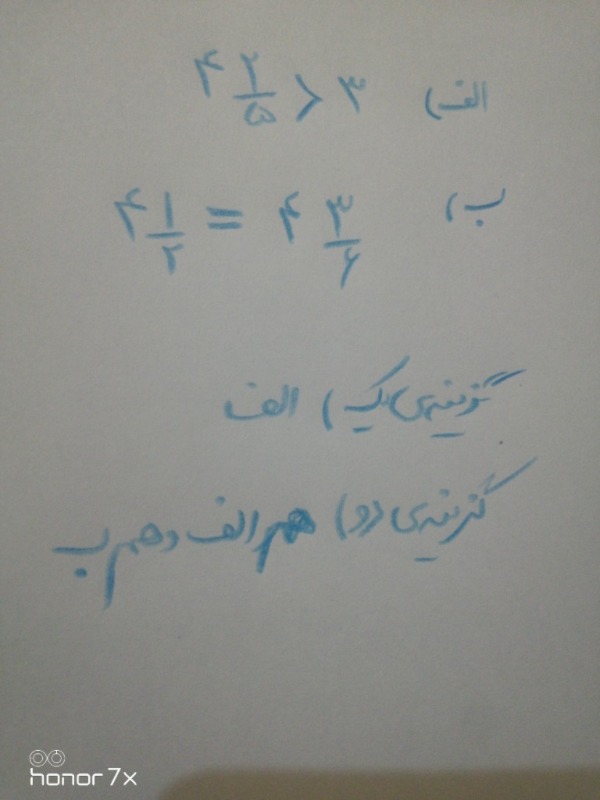 الف) ۴ ۲/۵ > ۳
ب) ۴ ۱/۲ = ۴ ۳/۶
گزینه‌ی یک) الف
گزینه‌ی دو) هم الف و هم ب
honor 7x